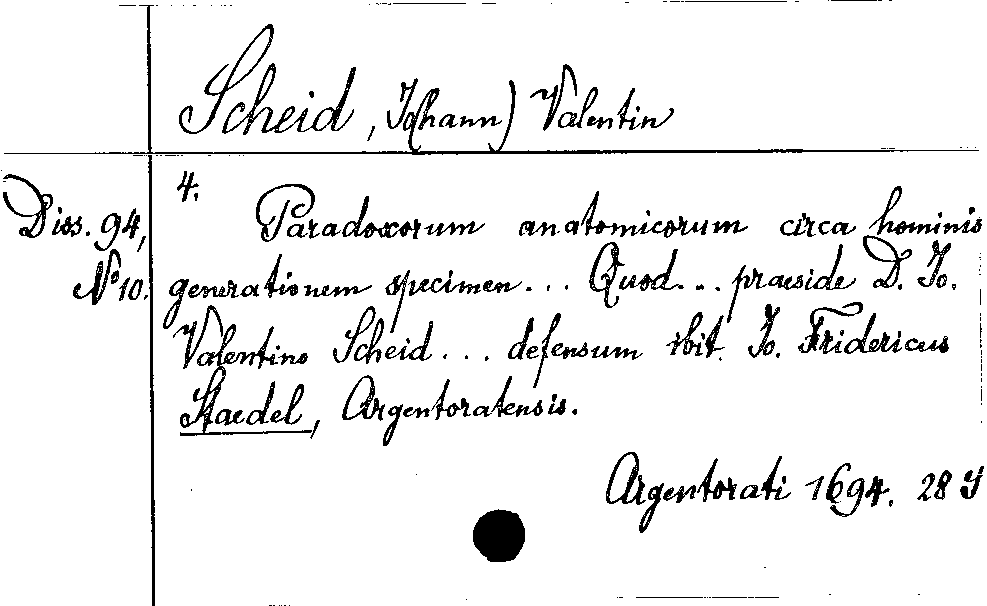 Scheid, Jo(hann) Valentin
4.
Diss. 94, Paradoxorum anatomicorum circa hominis
No 10. generationem specimen... Quod... praeside D. Jo.
Valentino Scheid... defensum ibit Jo. Fridericus
Staedel, Argentoratensis.
Argentorati 1694. 28 S